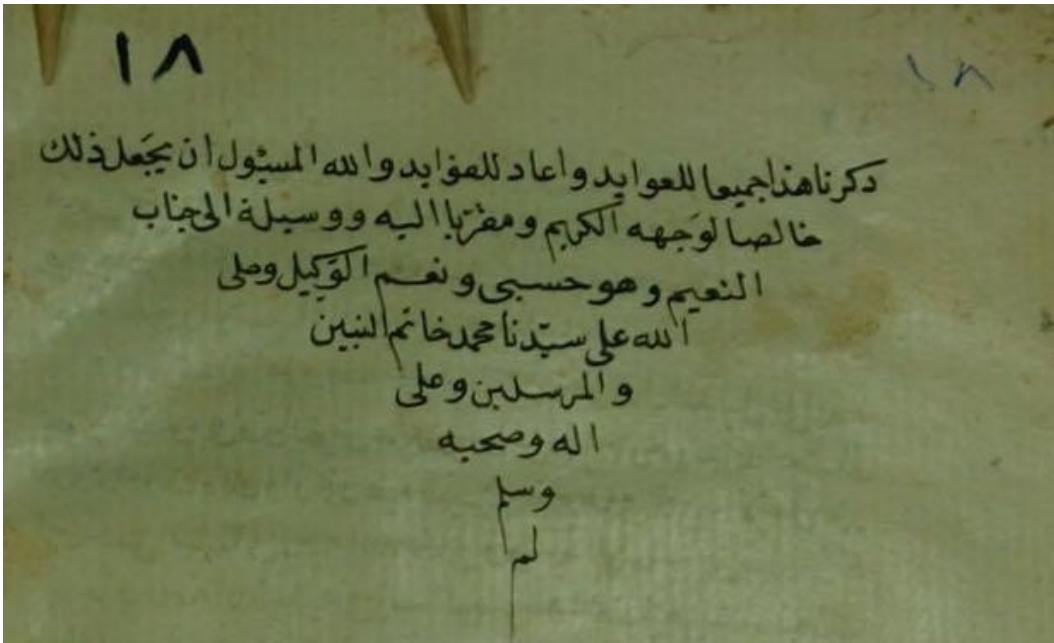 ١٨ ١٨
ذكرنا هذا جميعا للعوايد واعاد للفوايد والله المسئول ان يجَعل ذلك
خالصا لوَجهه الكريم ومقربا اليه ووسيلة الى جناب
النعيم وهو حسبى ونعم الوَكيل وصلى
الله على سيّدنا محمد خاتم النبين
والمرسلين وعلى
اله وصحبه
وسلم